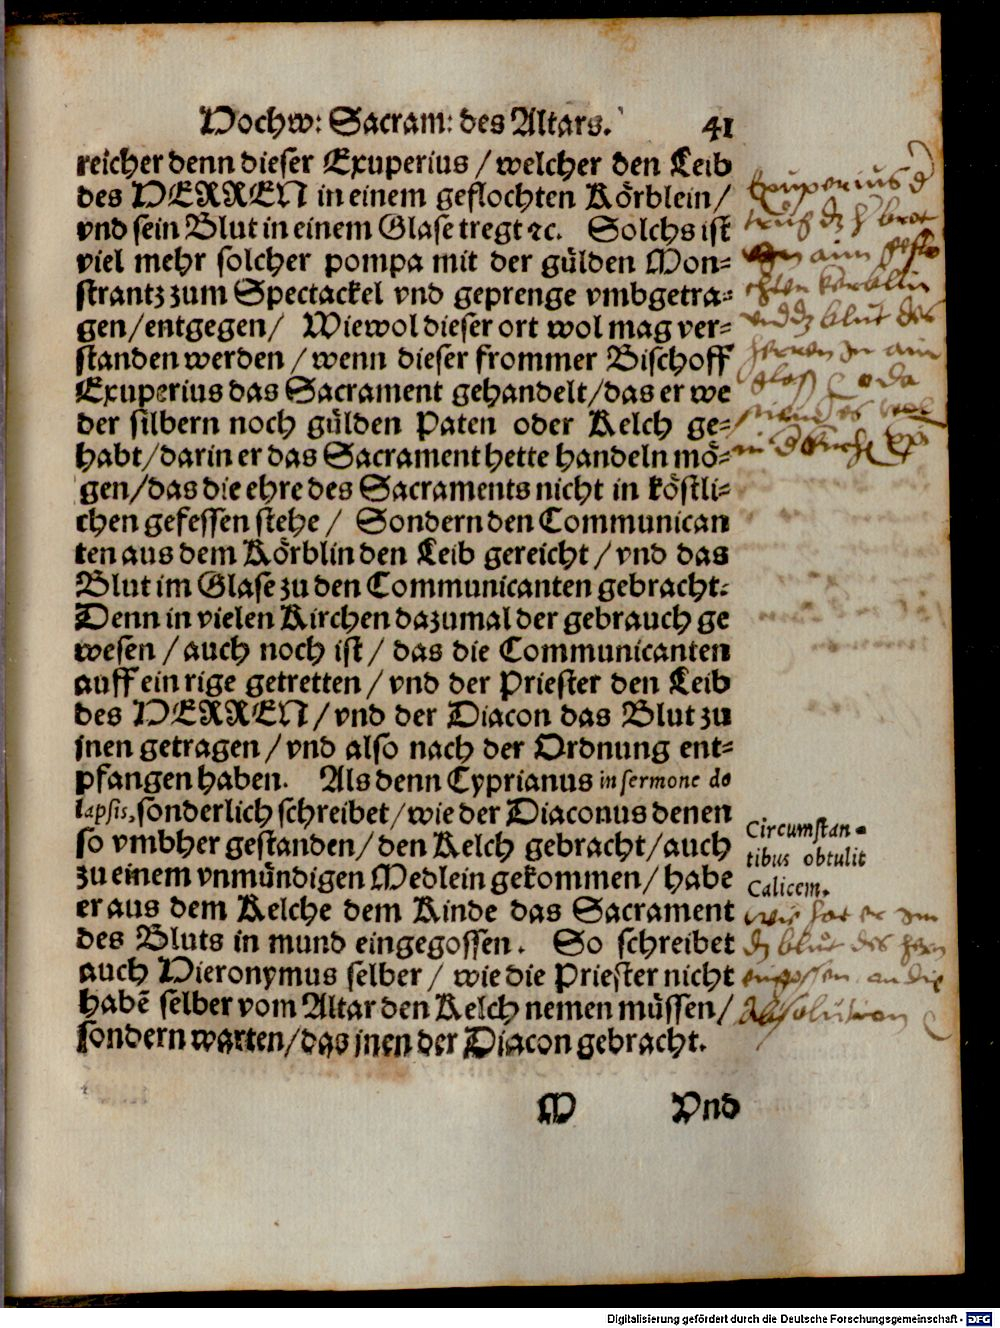 Hochw: Sacram: des Altars. 41
reicher denn dieser Exuperius / welcher den Leib
des HERREN in einem geflochten Körblein /
vnd sein Blut in einem Glase tregt ꝛc. Solchs ist
viel mehr solcher pompa mit der gülden Mon-
strantz zum Spectackel vnd geprenge vmbgetra-
gen / entgegen / Wiewol dieser ort wol mag ver-
standen werden / wenn dieser frommer Bischoff
Exuperius das Sacrament gehandelt / das er we
der silbern noch gülden Paten oder Kelch ge-
habt / darin er das Sacrament hette handeln mö-
gen / das die ehre des Sacraments nicht in köstli-
chen gefessen stehe / Sondern den Communican
ten aus dem Körblin den Leib gereicht / vnd das
Blut im Glase zu den Communicanten gebracht.
Denn in vielen Kirchen dazumal der gebrauch ge
wesen / auch noch ist / das die Communicanten
auff ein rige getretten / vnd der Priester den Leib
des HERREN / vnd der Diacon das Blut zu
jnen getragen / vnd also nach der Ordnung ent-
pfangen haben. Als denn Cyprianus in sermone de
lapsis, sonderlich schreibet / wie der Diaconus denen
so vmbher gestanden / den Kelch gebracht / auch
zu einem vnmündigen Medlein gekommen / habe
er aus dem Kelche dem Kinde das Sacrament
des Bluts in mund eingegossen. So schreibet
auch Hieronymus selber / wie die Priester nicht
habẽ selber vom Altar den Kelch nemen müssen /
sondern warten / das jnen der Diacon gebracht.
M Vnd
Exuperius
trug dz h brot
ain geflo
chten kerblin
vnd dz blut des
herren in ain
glaß
Circumstan-
tibus obtulit
Calicem.
wie hat er im
dz blut des hern
eingossen an die
Absolution
Digitalisierung gefördert durch die Deutsche Forschungsgemeinschaft - DFG